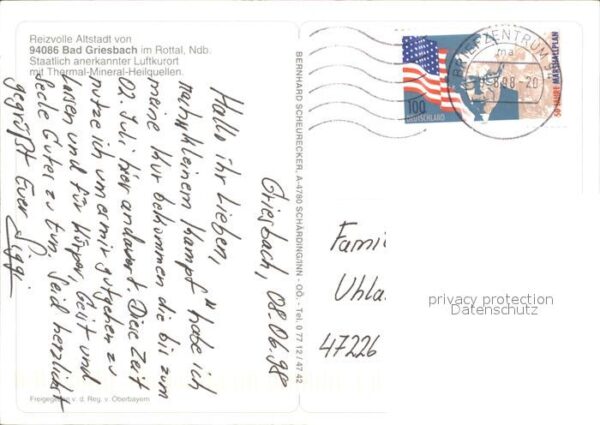 Reizvolle Altstadt von
94086 Bad Griesbach im Rottal, Ndb.
Staatlich anerkannter Luftkurort
mit Thermal-Mineral-Heilquellen.
Griesbach, 08.06.98
Hallo ihr Lieben,
nach "kleinem Kampf" habe ich
meine Kur bekommen die bis zum
02. Juli hier andauert. Diese Zeit
nutze ich um es mir gutgehen zu
lassen und für Körper, Geist und
Seele Gutes zu tun. Seid herzlichst
gegrüßt Euer Siggi
Freigegeben v. d. Reg. v. Oberbayern
BERNHARD SCHEURECKER, A-4780 SCHÄRDING/INN - OÖ. - Tel. 0 77 12 / 47 42
BRIEFZENTRUM
ma
6.98-20
50 JAHRE MARSHALLPLAN
100
DEUTSCHLAND
Fami
Uhla
47226
privacy protection
Datenschutz